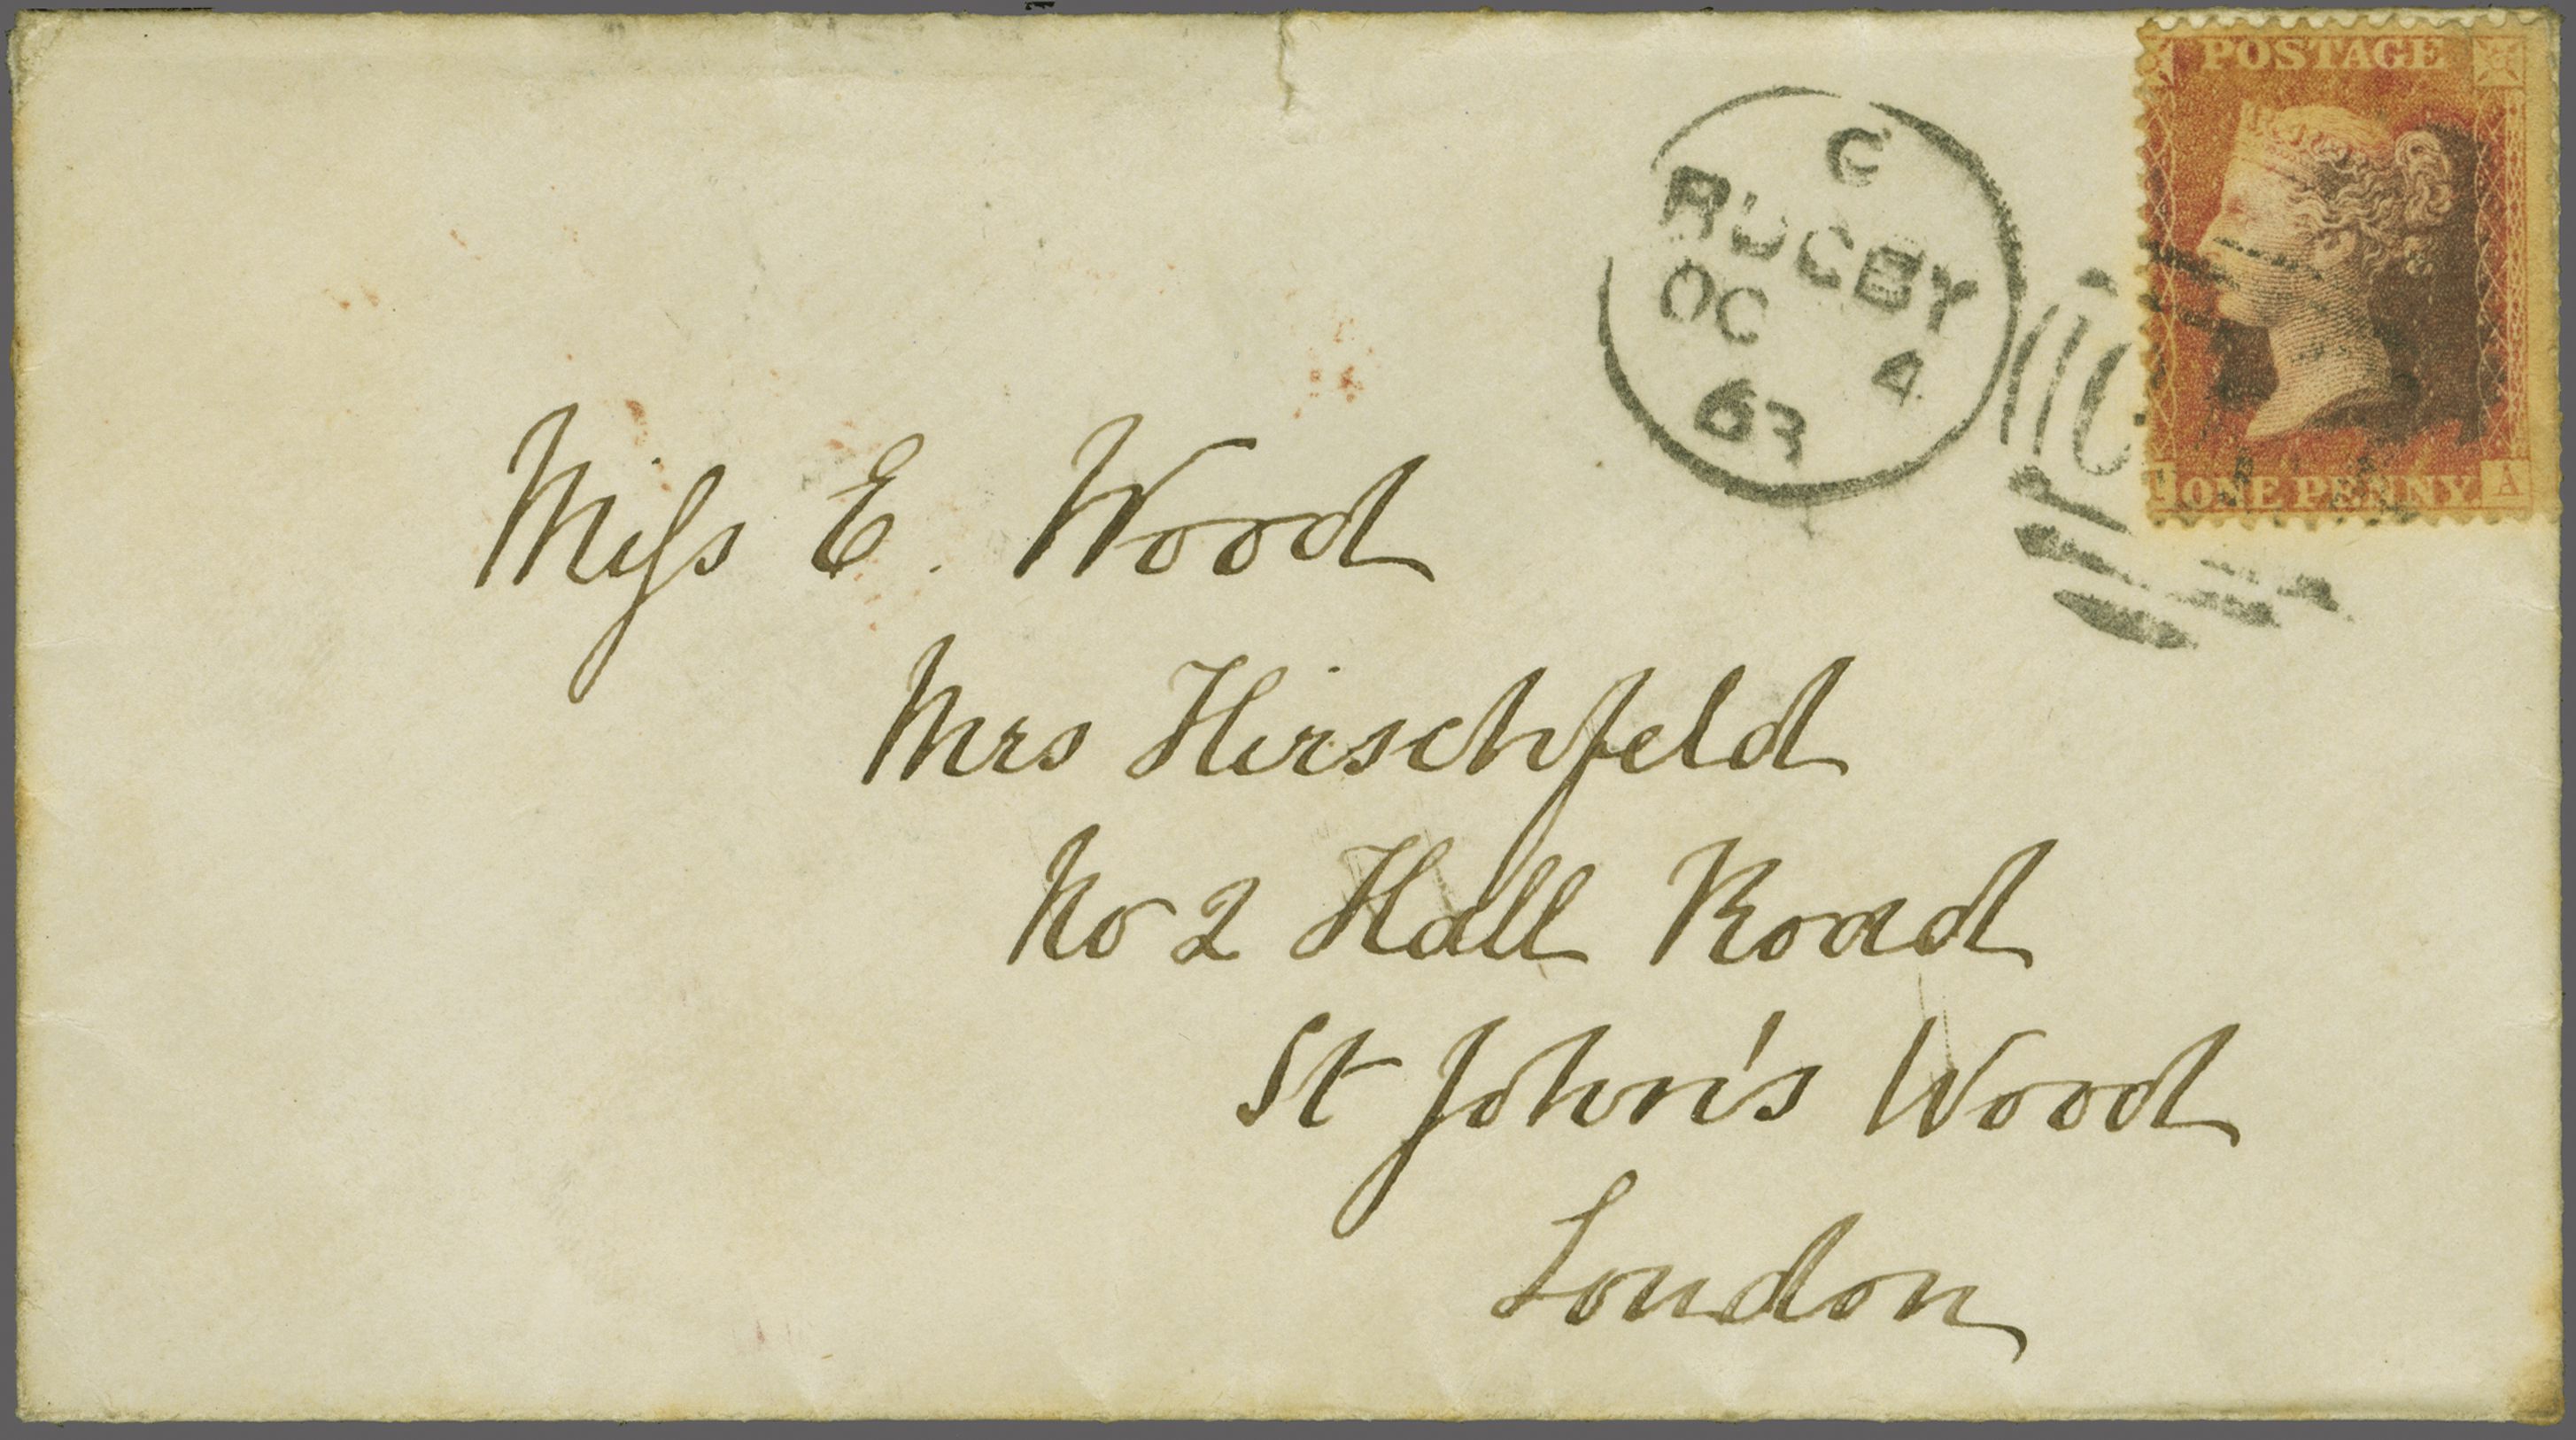 POSTAGE
C
RUGBY
OC 4
63
ONE PENNY A
Miss E. Wood
Mrs Hirschfeld
No 2 Hall Road
St John's Wood
London